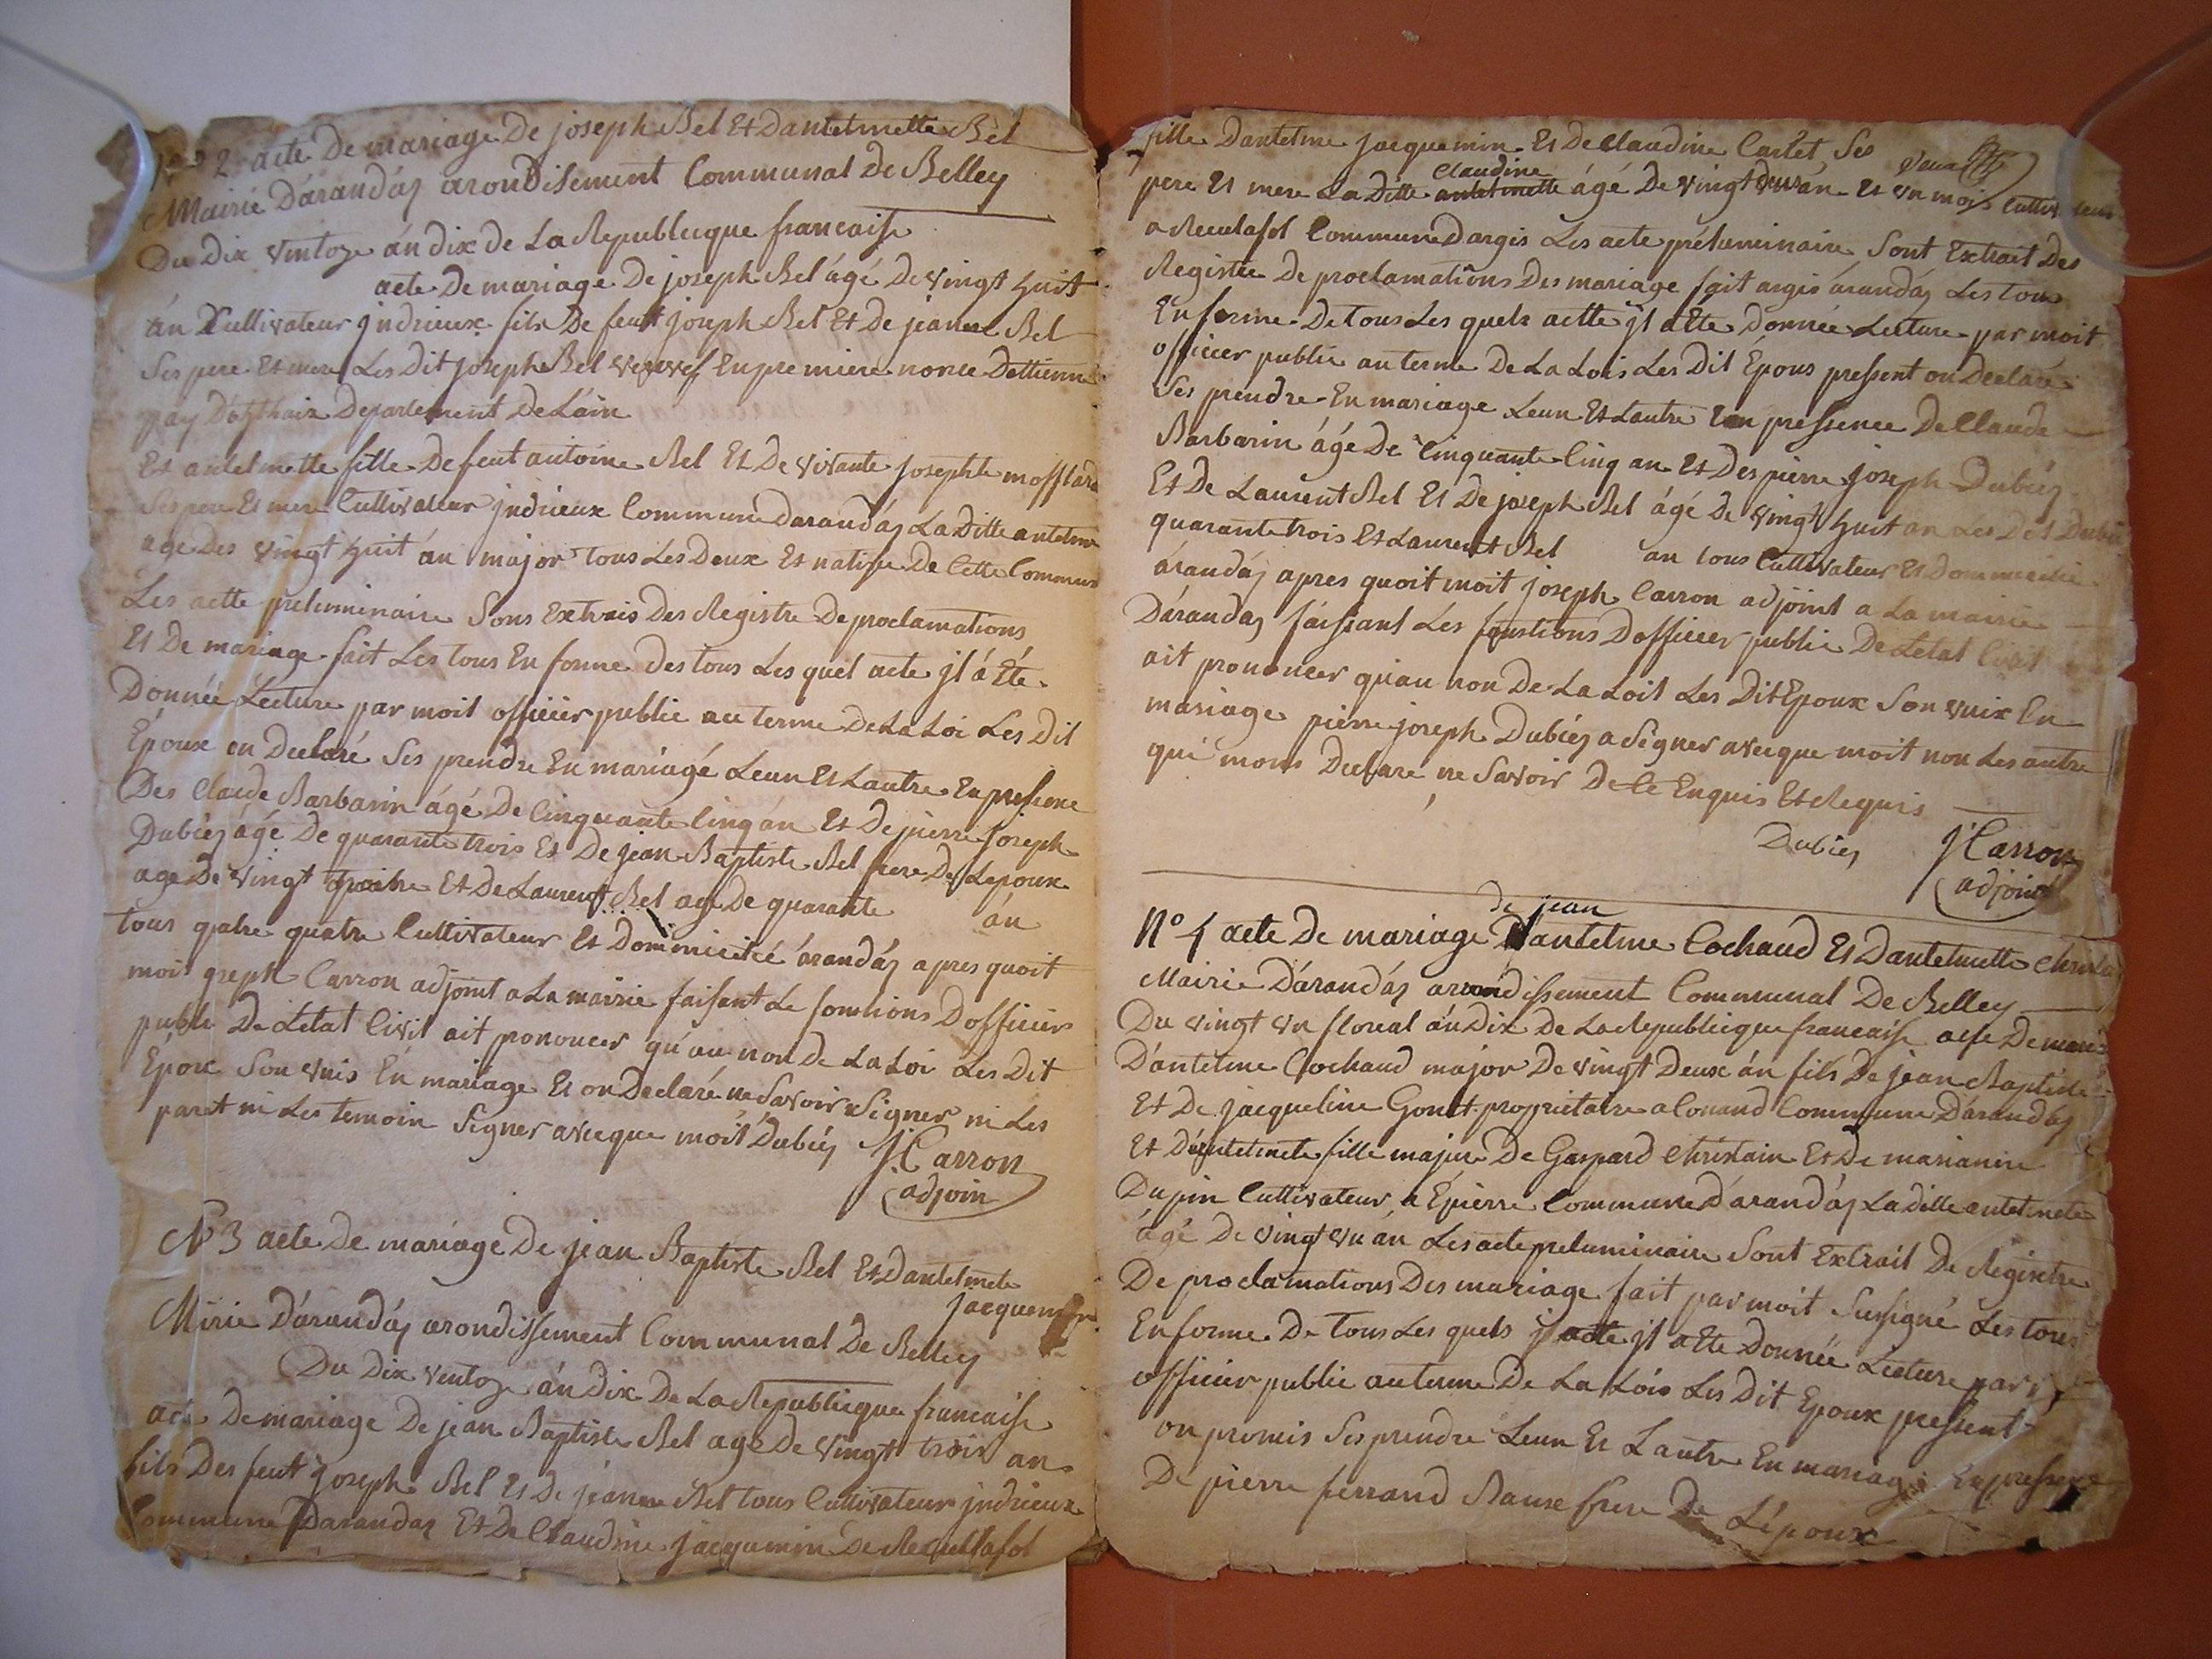 2 acte De mariage De joseph Bel Et Dantelmette Bel
Mairie Dárandáz arondisement Communal De Belley
Du Dix ventoze án dix de La Republicque francaise
acte De mariage De joseph Bel ágé De vingt huit
án Cultivateur jndrieux fils De feut joseph Bel Et De jeanne Bel
Ses pere Et mere Les Dit joseph Bel vexvef En premiere nonce Dettienne
pay Departement De Láin
Et antelmette fille De feut antoine Bel Et De vivante josephte
Ses pere Et mere Cultivateur jndrieux Commune Darandáz La Ditte antelm
age Des vingt huit án major Tous Les Deux Et natife De Cette Commun
Les actte preluminaire Sons Extrais Des Registre De proclamations
Et De mariage fait Les tous En forme Des tous Les quel acte jl á Ete
Donnée Lecture par moit officier public au terme De La Loi Les Dit
Époux on Declaré Ses prendre En mariagé Leun Et Lautre En presence
Des Claude Barbarin ágé De Cinquante Cinq án Et De pierre joseph
Dubiez ágé De quarante trois Et De jean Baptiste Bel frere De Lepoux
age De vingt Et De Laurent Bel age De quarante án
tous quatre Cultivateur Et Dommicilié árandáz apres quoit
moit joseph Carron adjoint a La mairie faisant Le fonctions Dofficier
public De Létat Civil ait prononcer qu'au non De La Loi Les Dit
Époux Son vnis En mariage Et on Declaré ne Savoir Signer ni Les
paret ni Les temoin Signer avecque moit Dubiez J Carron
adjoin
N 3 acte De mariage De jean Baptiste Bel Et Dantelmete
jacquemin
Mirie Dárandáz arondissement Communal De Belley
Du Dix ventoze án Dix De La Republicque francaise
acte De mariage De jean Baptiste Bel age De vingt trois an
fils Des feut joseph Bel Et De jeanne Bel tous Cultivateur jndrieux
Commune Darandaz Et De Claudine jacquemin De Reculafol
fille Dantelme jacquemin Et De Claudine Cartet Ses
Claudine
pere Et mere La Ditte antelmette ágé De vingt deux án Et vn mois Cultivateur
a Reculafol Commune Dargis Les acte préluminaire Sont Extrait Des
Registre De proclamations Des mariage fait argis árandáz Les tous
En forme De Tous Les quels actte jl a Ete Donnée Lecture par moit
officier public au terme De La Lois Les Dit Épous present on Declaré
Ses prendre En mariage Leun Et Lautre En pressence De Claude
Barbarin ágé De Cinquante Cinq an Et Des pierre joseph Dubiez
Et De Laurent Bel Et De joseph Bel ágé De vingt huit an Les Dit Dubiez
quarante trois Et Laurent Bel an tous Cultivateur Et Dommicilié
árandáz apres quoit moit joseph Carron adjoint a La mairie
Dárandáz faisant Les fonctions Dofficier public De Letat Civil
ait prononcer qu'au non De La Loit Les Dit Epoux Son vnix En
mariage pierre joseph Dubiez a Signer avecque moit non Les autre
qui mons Declaré ne Savoir De Ce Enquis Et Requis
Dubiez J Carron
adjoint
de jean
N° 4 acte De mariage Dantelme Cochaud Et Dantelmette
Mairie Dárandáz arondissement Communal De Belley
Du vingt vn floreal án Dix De La Republicque francaise acte De
Dántelme Cochaud major De vingt Deux án fils De jean Baptiste
Et De jacqueline proprietaire a Conand Commune Dárandáz
Et Dántelmete fille majure De Gaspard Christain Et De
Dupin Cultivateur a Épierre Commune Dárandáz La Ditte antelmete
ágé De vingt vn án Les acte preluminaire Sont Extrait De Registre
De proclamations Des mariage fait par moit Susigné Les tous
En forme De Tous Les quels acte jl a Ete Donnée Lecture par
officier public au terme De La Lois Les Dit Epoux pressent
on promis Ses prendre Leun Et Lautre En mariage En pressence
De pierre ferrand Baux frere De Lépoux